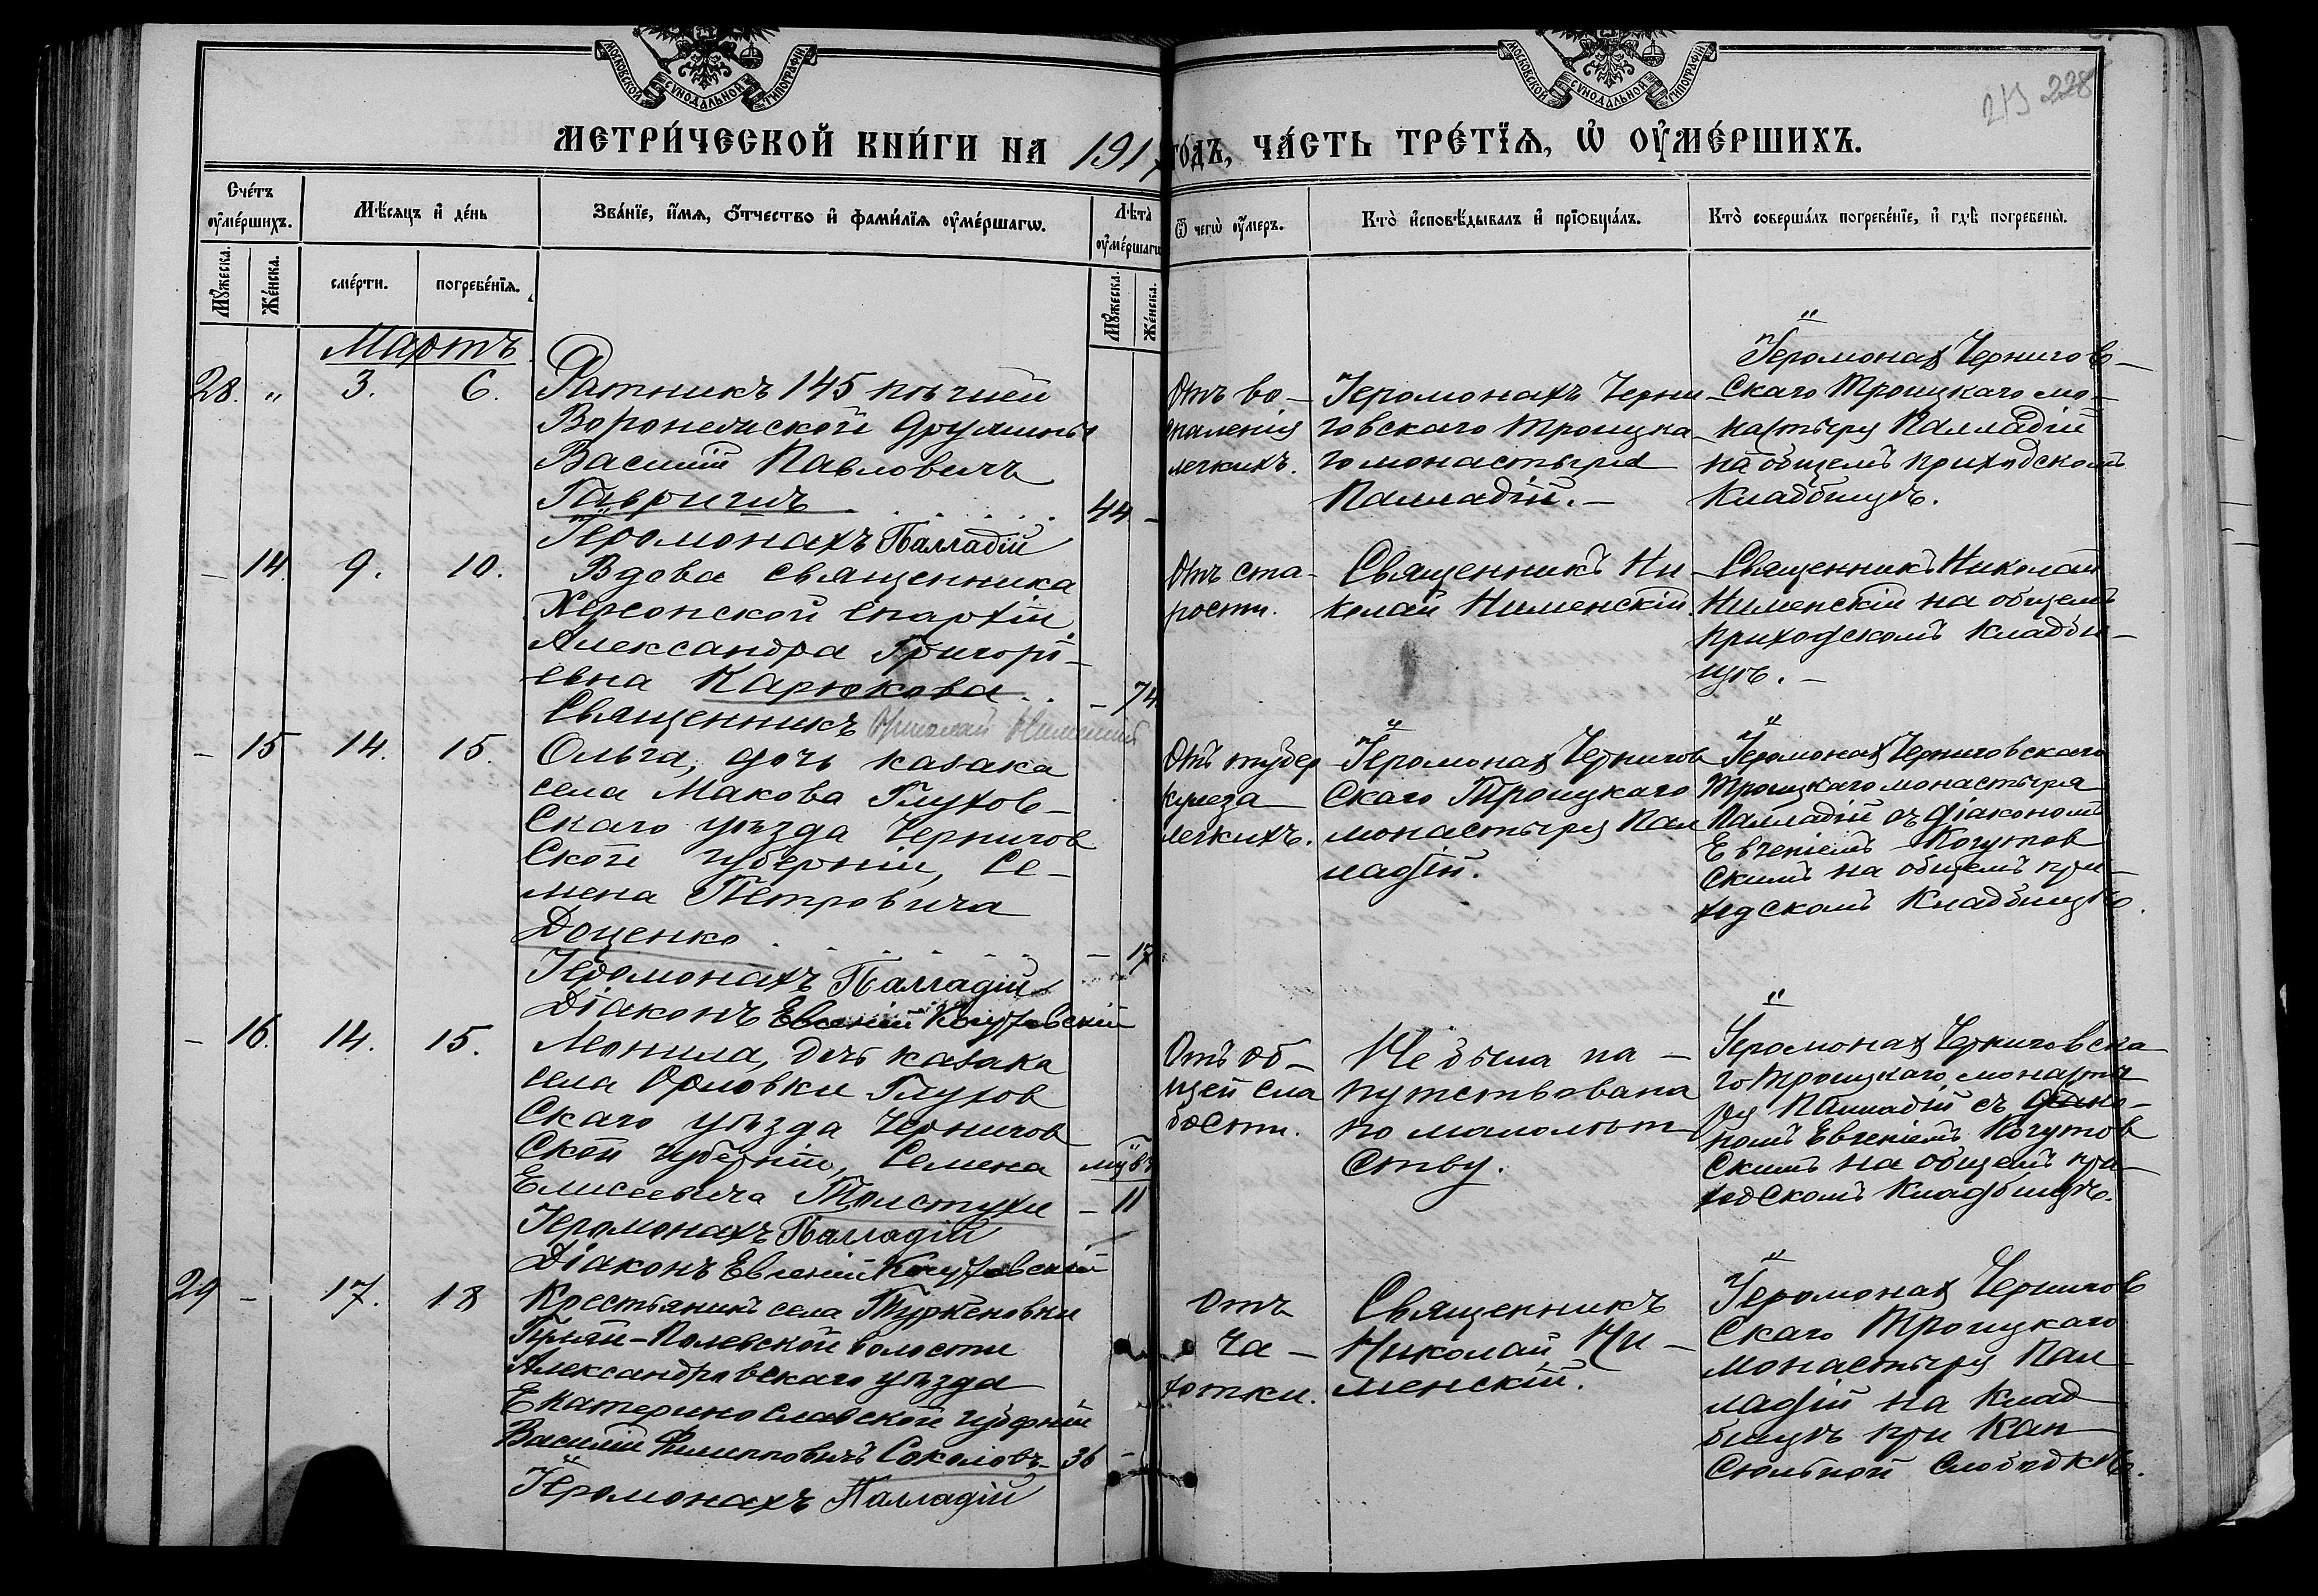 МОСКОВСКОЙ СѴНОДАЛЬНОЙ ТИПОГРАФІИ
МОСКОВСКОЙ СѴНОДАЛЬНОЙ ТИПОГРАФІИ
228
МЕТРИ́ЧЕСКОЙ КНИ́ГИ НА 191 го́дъ, ЧА́СТЬ ТРЕ́ТЇѦ, Ѡ҆ ОУ҆МЕ́РШИХЪ.
Сче́тъ оу҆ме́ршихъ.
Мѣ́сяцъ и҆ де́нь
Зва́нїе, и҆́мя, ѻ҆́тчество и҆ фами́лїя оу҆ме́ршагѡ.
Лѣта̀ оу҆ме́ршагѡ
Ѿ чегѡ̀ оу҆́меръ.
Кто̀ и҆сповѣ́дывалъ и҆ прїѡбща́лъ.
Кто̀ соверша́лъ погребе́нїе, и҆ гдѣ̀ погребены̀.
Мꙋ́жеска.
Же́нска.
сме́рти.
погребе́нїя.
Мꙋ́жеска.
Же́нска.
Мартъ
28. " 3. 6.
Ратникъ 145 пѣшей
Воронежской дружины
Василій Павловичъ
Гавришъ
44 -
Іеромонахъ Палладій
Отъ во-
спаленія
легкихъ.
Іеромонахъ Черни-
говскаго Троицка-
го монастыря
Палладій. -
Іеромонахъ Чернигов-
скаго Троицкаго мо-
настыря Палладій
на общемъ приходскомъ
кладбищѣ.
- 14. 9. 10.
Вдова священника
Херсонской епархіи
Александра Григорі-
евна Карюкова
- 74
Священникъ Николай
Отъ ста-
рости.
Священникъ Ни-
колай Нименскій.
Священникъ Николай
Нименскій на общемъ
приходскомъ кладби-
щѣ. -
- 15 14. 15.
Ольга, дочь казака
села Макова Глухов-
скаго уѣзда Чернигов
ской губерніи, Се-
мена Петровича
Доценко
- 17
Іеромонахъ Палладій
Діаконъ Евгеній Когутовскій
Отъ тубер
кулеза
легкихъ.
Іеромонахъ Чернигов
скаго Троицкаго
монастыря Пал
ладій.
Іеромонахъ Черниговскаго
Троицкаго монастыря
Палладій съ діакономъ
Евгеніемъ Когутов
скимъ на общемъ при-
ходскомъ кладбищѣ.
- 16. 14. 15.
Леонила, дочь казака
села Орловки Глухов
скаго уѣзда Чернигов
ской губерніи, Семена
Елисеевича Толстухи
- 11
Іеромонахъ Палладій
Діаконъ Евгеній Когутовскій
Отъ об-
щей сла
бости.
Не была на-
путствована
по малолѣт
ству.
Іеромонахъ Черниговска
го Троицкаго монасты
ря Палладій съ діако-
номъ Евгеніемъ Когутов
скимъ на общемъ при-
ходскомъ кладбищѣ.
29 - 17. 18
Крестьянинъ села Туркеновки
Гуляй-Полевской волости
Александровскаго уѣзда
Екатеринославской губерніи
Василій Филипповичъ Соколовъ
36 -
Іеромонахъ Палладій
Отъ
ча-
хотки.
Священникъ
Николай Ни-
менскій.
Іеромонахъ Чернигов
скаго Троицкаго
монастыря Пал
ладій на клад
бищѣ при Кап
сюльной Слободкѣ.